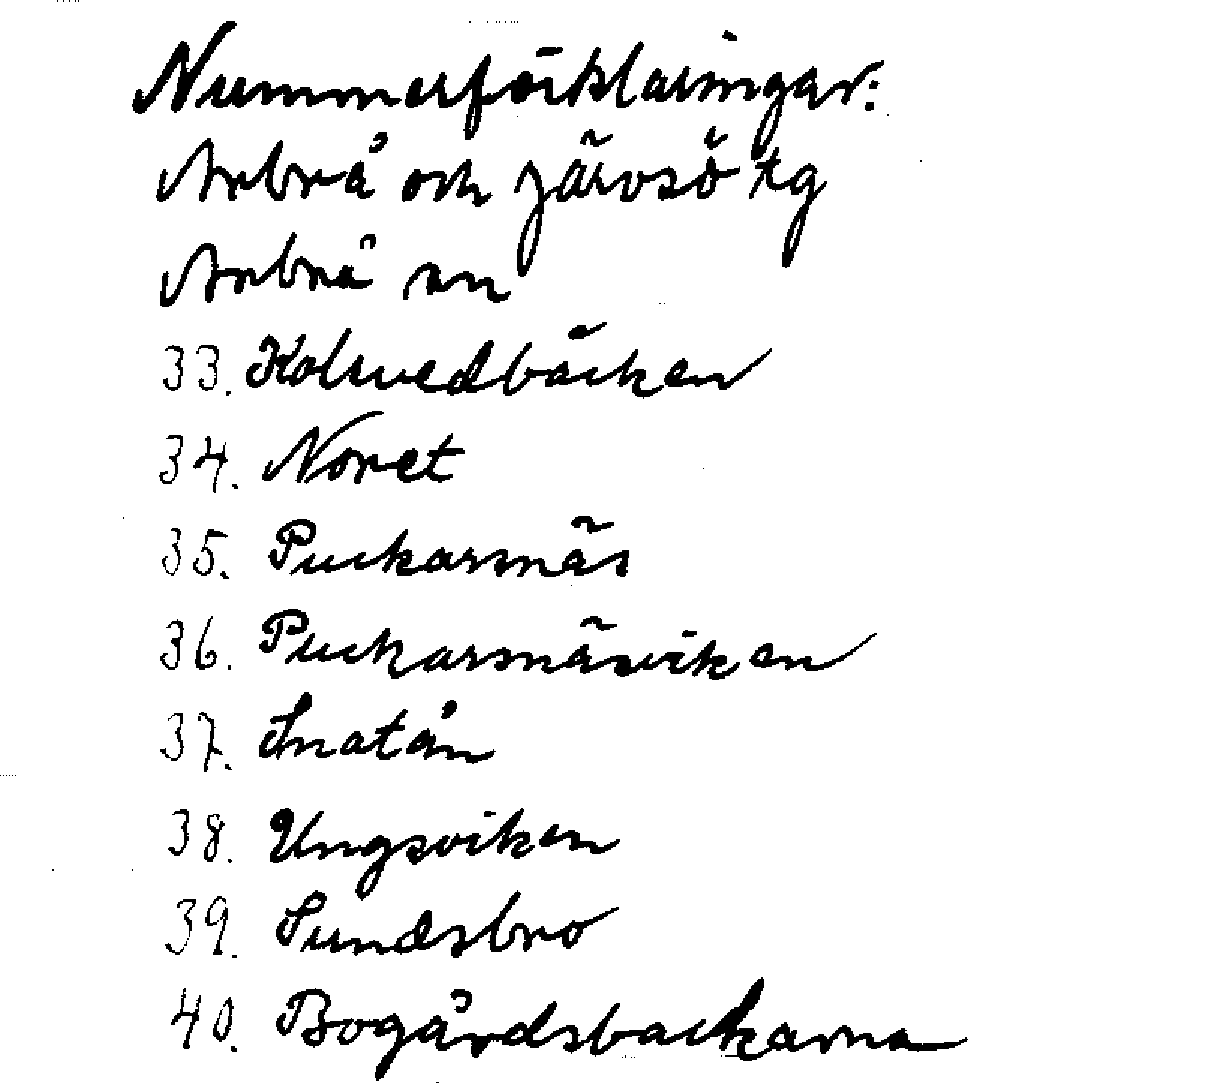 Nummerförklaringar:
Arbrå och Järvsö tg
Arbrå sn
33. Kolsvedbäcken
34. Noret
35. Puckarsnäs
36. Puckarsnäsviken
37. Snatån
38. Ungsviken
39. Sundsbro
40. Bogårdsbackarna